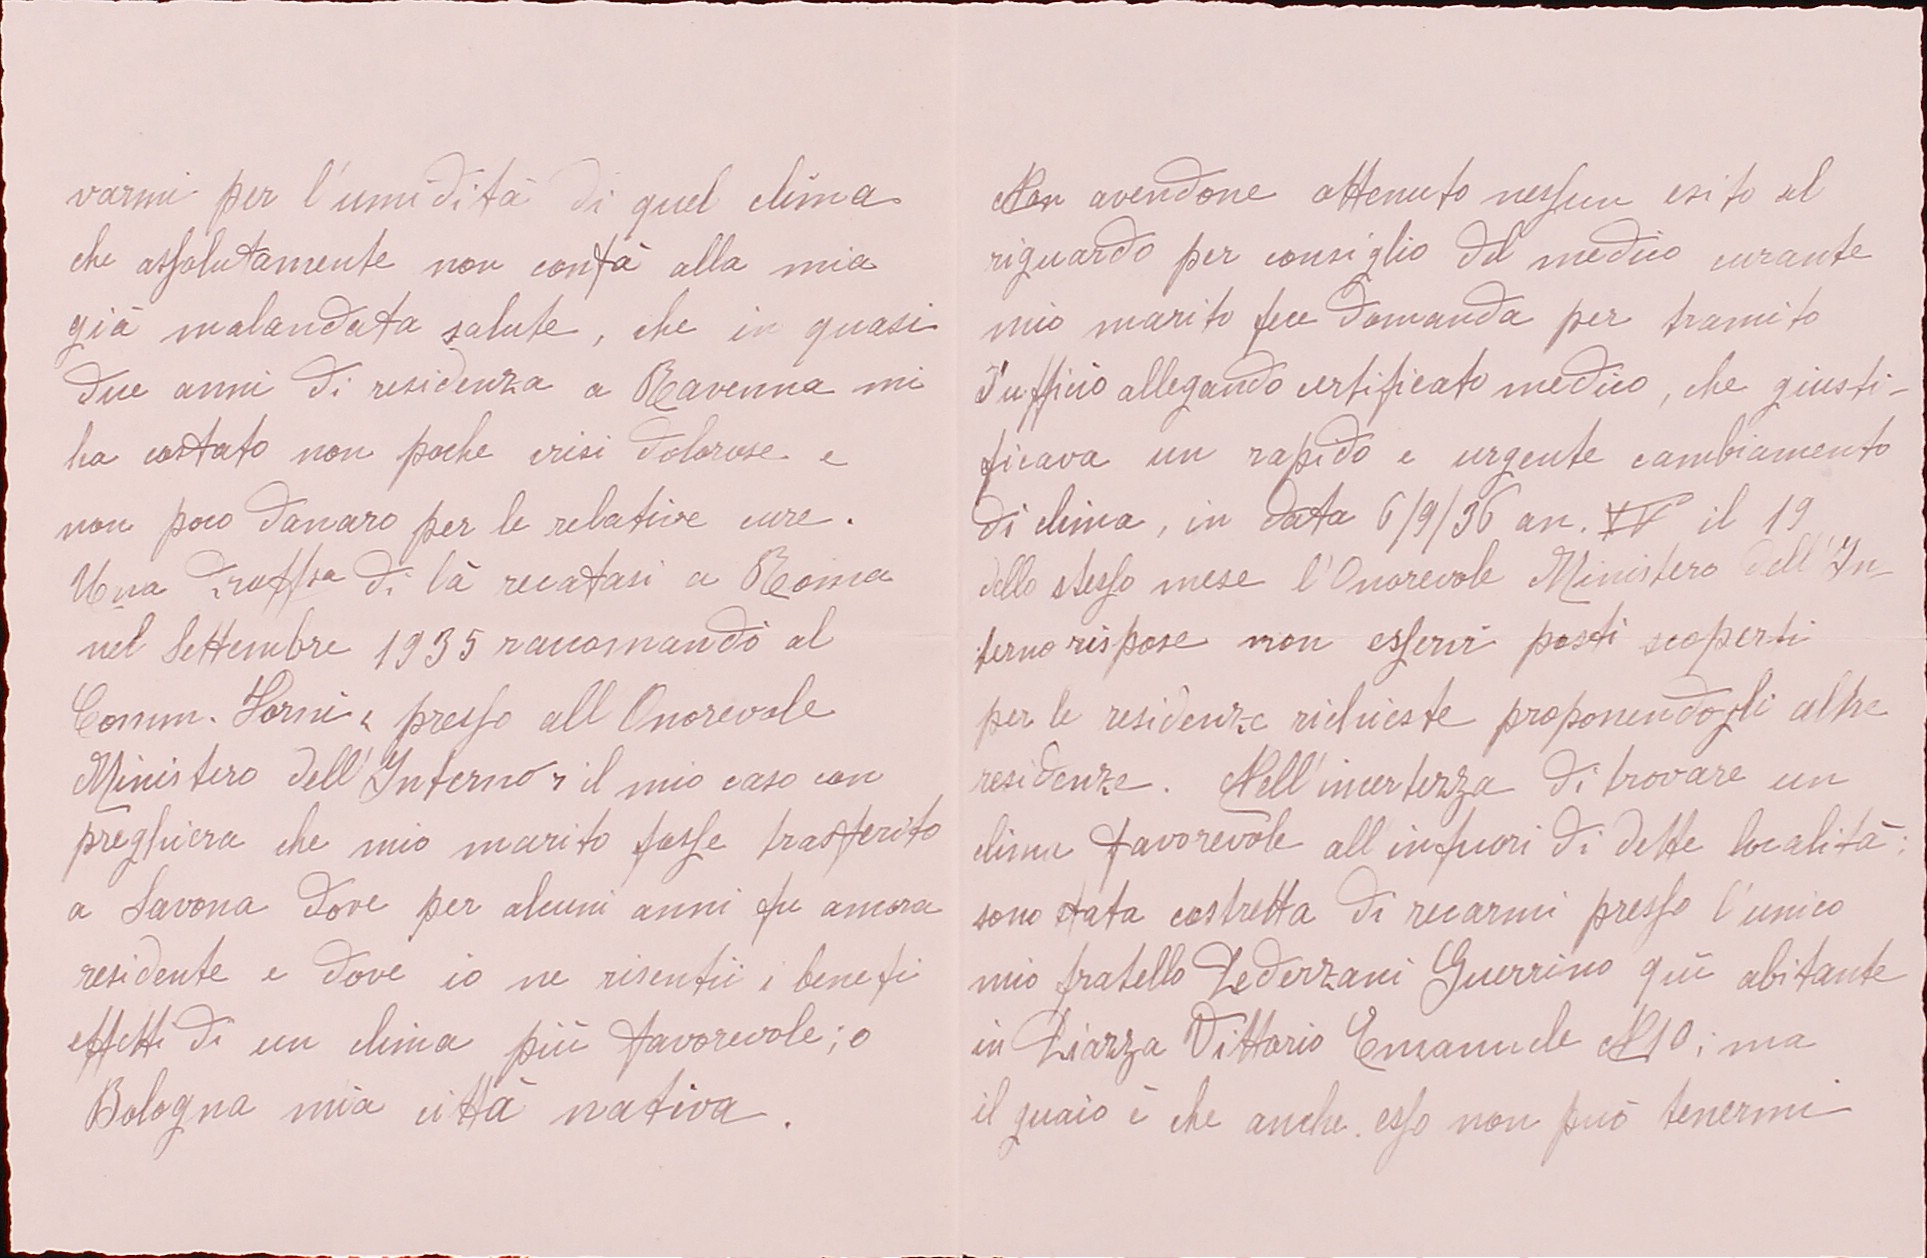 varmi per l'umidità di quel clima
che assolutamente non confà alla mia
già malandata salute, che in quasi
due anni di residenza a Ravenna mi
ha costato non poche crisi dolorose e
non poco danaro per le relative cure.
Una di là recatasi a Roma
nel Settembre 1935 raccomandò al
Comm. presso all Onorevole
Ministero dell'Interno, il mio caso con
preghiera che mio marito fosse trasferito
a Savona dove per alcuni anni fu ancora
residente e dove io ne risentii i benefi
effetti di un clima più favorevole; o
Bologna mia città nativa.
Non avendone ottenuto nessun esito al
riguardo per consiglio del medico curante
mio marito fece domanda per tramito
d'ufficio allegando certificato medico, che giusti-
ficava un rapido e urgente cambiamento
di clima, in data 6/9/36 an. XIV il 19
dello stesso mese l'Onorevole Ministero dell'In-
terno rispose non esservi posti scoperti
per le residenze richieste proponendogli altre
residenze. Nell'incertezza di trovare un
clima favorevole all infuori di dette località;
sono stata costretta di recarmi presso l'unico
mio fratello Pederzani Guerrino quì abitante
in Piazza Vittorio Emanuele N10; ma
il guaio è che anche esso non può tenermi